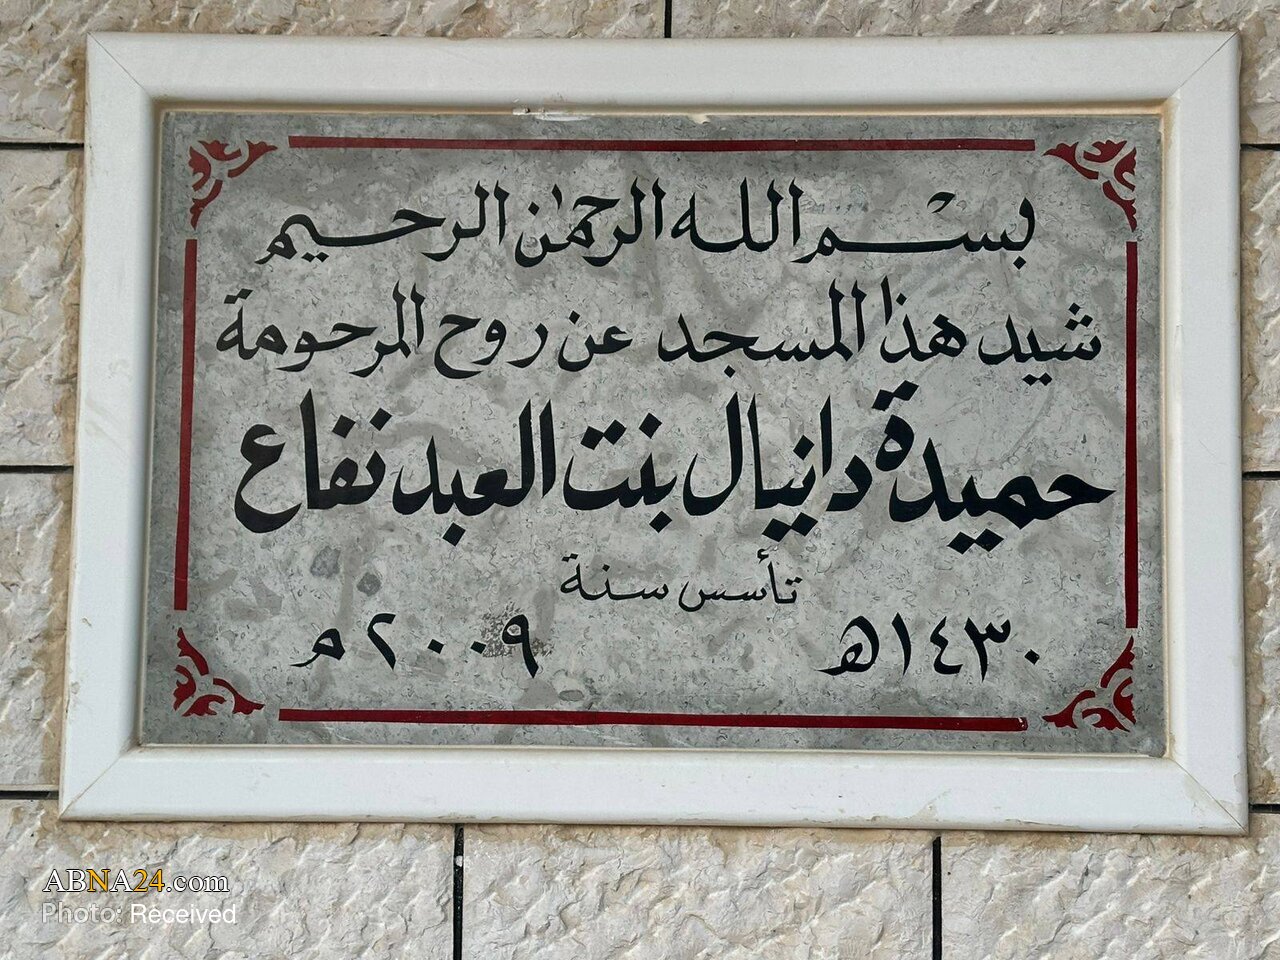 بسم الله الرحمٰن الرحيم
شيد هذا المسجد عن روح المرحومة
حميدة دانيال بنت العبد نفاع
تأسس سنة
١٤٣٠هـ ٢٠٠٩م
ABNA24.com
Photo: Received